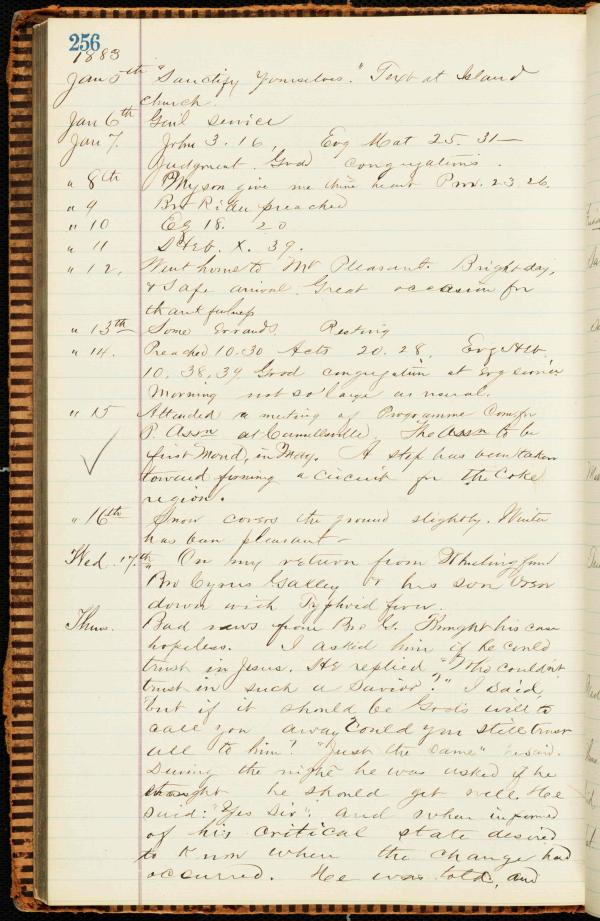 256
1883
Jan 5th "Sanctify Yourselves." Text at Island
church.
Jan 6th Gen'l service
Jan 7. John 3. 16, Evg Mat 25. 31—
Judgment. Good congregations.
" 8th "My son give me thine heart Prov. 23. 26.
" 9 Bro Rider preached
" 10 Ez 18. 20
" 11 Heb. X. 39.
" 12. Went home to Mt Pleasant. Bright day,
& safe arrival. Great occasion for
thankfulness
" 13th Some errands. Resting
" 14. Preached 10.30 Acts 20. 28, Evg Heb.
10. 38, 39. Good congregation at Evg service
Morning not so large as usual.
" 15 Attended a meeting of Programme Com. for
P. Assn at Connellsville. The Assn to be
first Mond, in May. A step has been taken
toward forming a circuit for the Coke
region.
" 16th Snow covers the ground slightly. Winter
has been pleasant -
Wed. 17th " On my return from Wheeling found
Bro Cyrus Galley & his son
down with Typhoid fever.
Thurs. Bad news from Bro G. Thought his case
hopeless. I asked him if he could
trust in Jesus. He replied "Who couldn't
trust in such a Savior?" I said,
"but if it should be God's will to
call you away could you still trust
all to him? "Just the same" he said.
During the night he was asked if he
thought he should get well. He
said: "Yes Sir": and when informed
of his critical state desired
to know when the change had
occurred. He was told, and